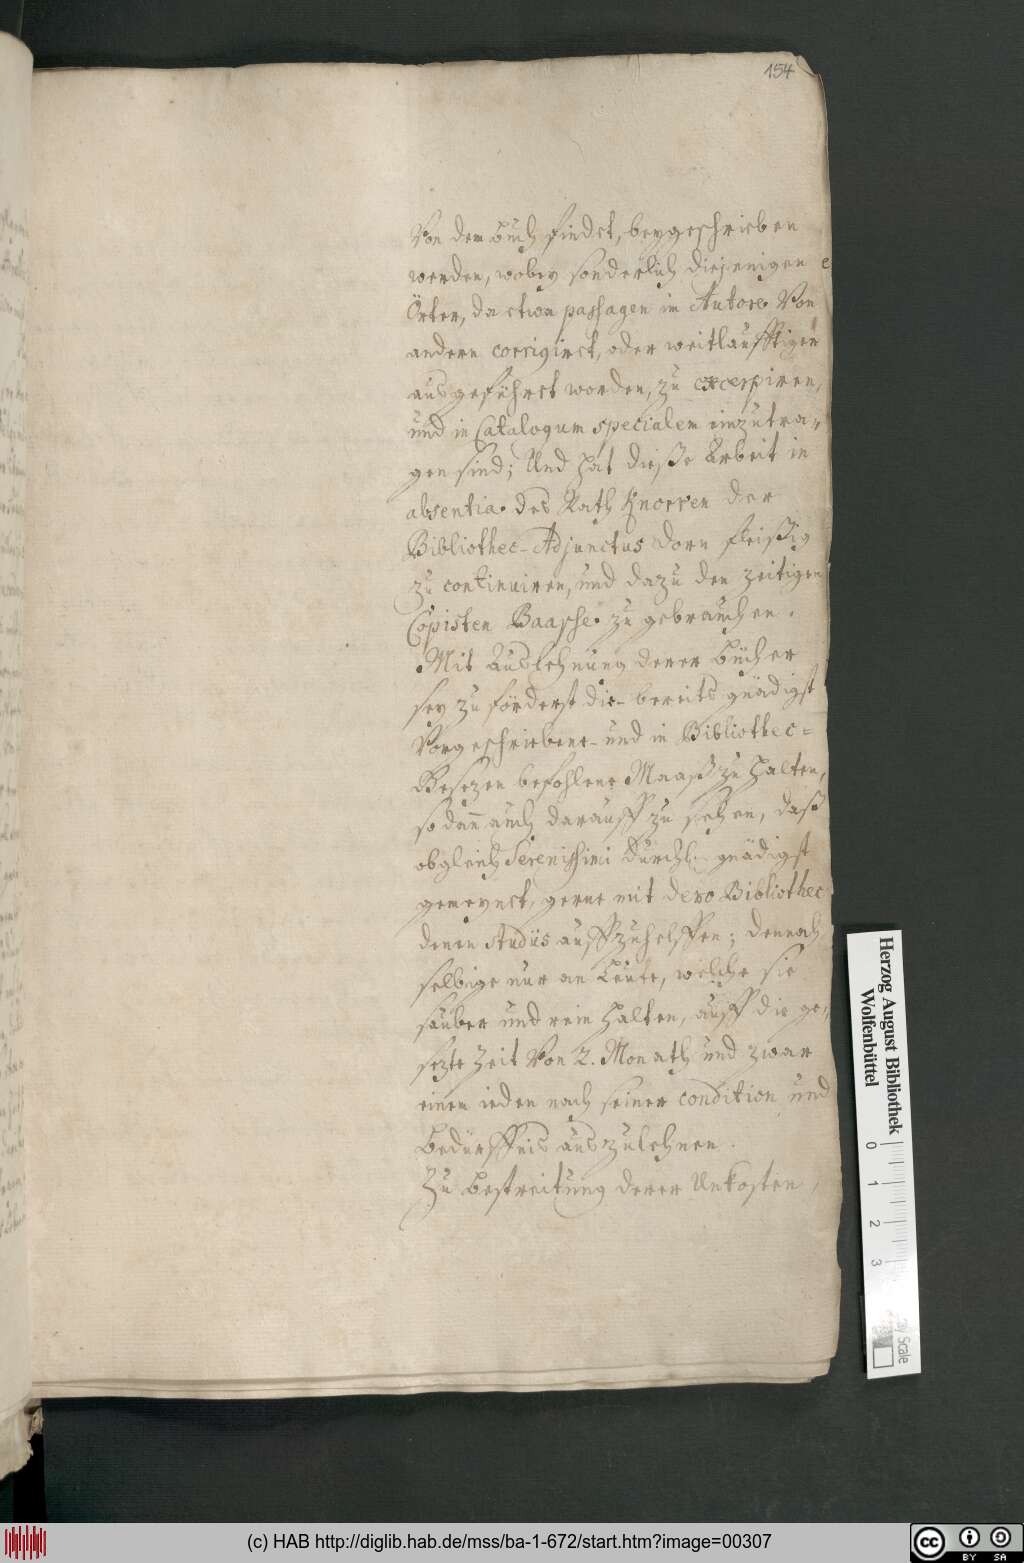 154
von dem Buch findet, beygeschrieben
werden, wobey sonderlich diejenigen
Örter, da etwa passagen im Autore von
andern corrigiret, oder weitläufftiger
ausgeführet worden, zu excerpiren,
und in Catalogum specialem einzutra-
gen sind; Und hat dieße Arbeit in
absentia des Rath Knorren der
Bibliothec-Adjunctus Dorn fleißig
zu continuiren, und dazu den zeitigen
Copisten Baasse zu gebrauchen.
Mit Auslehnung derer Bücher
sey zu förderst die bereits gnädigst
vorgeschriebene und in Bibliothec-
Gesezen befohlene Maaß zu halten,
so dann auch darauff zu sehen, daß
obgleich Serenissimi Durchl. gnädigst
gemeynet, gerne mit dero Bibliothec
denen studiis auffzuhelffen; dennoch
selbige nur an Leute, welche sie
sauber und rein halten, auff die ge-
sezte Zeit von 2. Monath und zwar
einem ieden nach seiner condition und
Bedürffnis auszulehnen.
Zu Bestreitung derer Unkosten,
Herzog August Bibliothek
Wolfenbüttel
0
1
2
3
Scale
(c) HAB http://diglib.hab.de/mss/ba-1-672/start.htm?image=00307
cc
BY SA